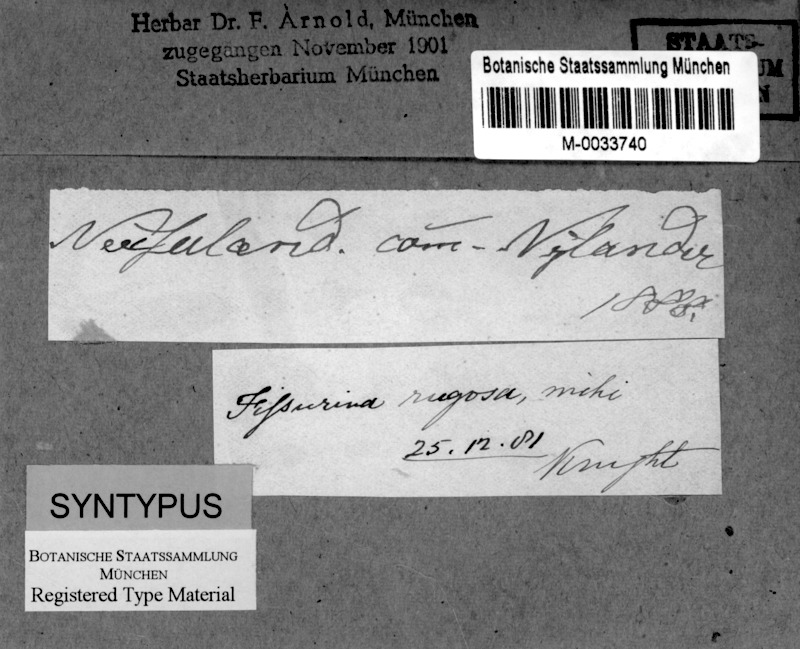 Herbar Dr. F. Arnold, München
zugegangen November 1901
Staatsherbarium München
STAATS-
UM
N
Botanische Staatssammlung München
M-0033740
Neuseeland. com̅- Nylander
188
Fissurina rugosa, mihi
25.12.81
Knight
SYNTYPUS
BOTANISCHE STAATSSAMMLUNG
MÜNCHEN
Registered Type Material